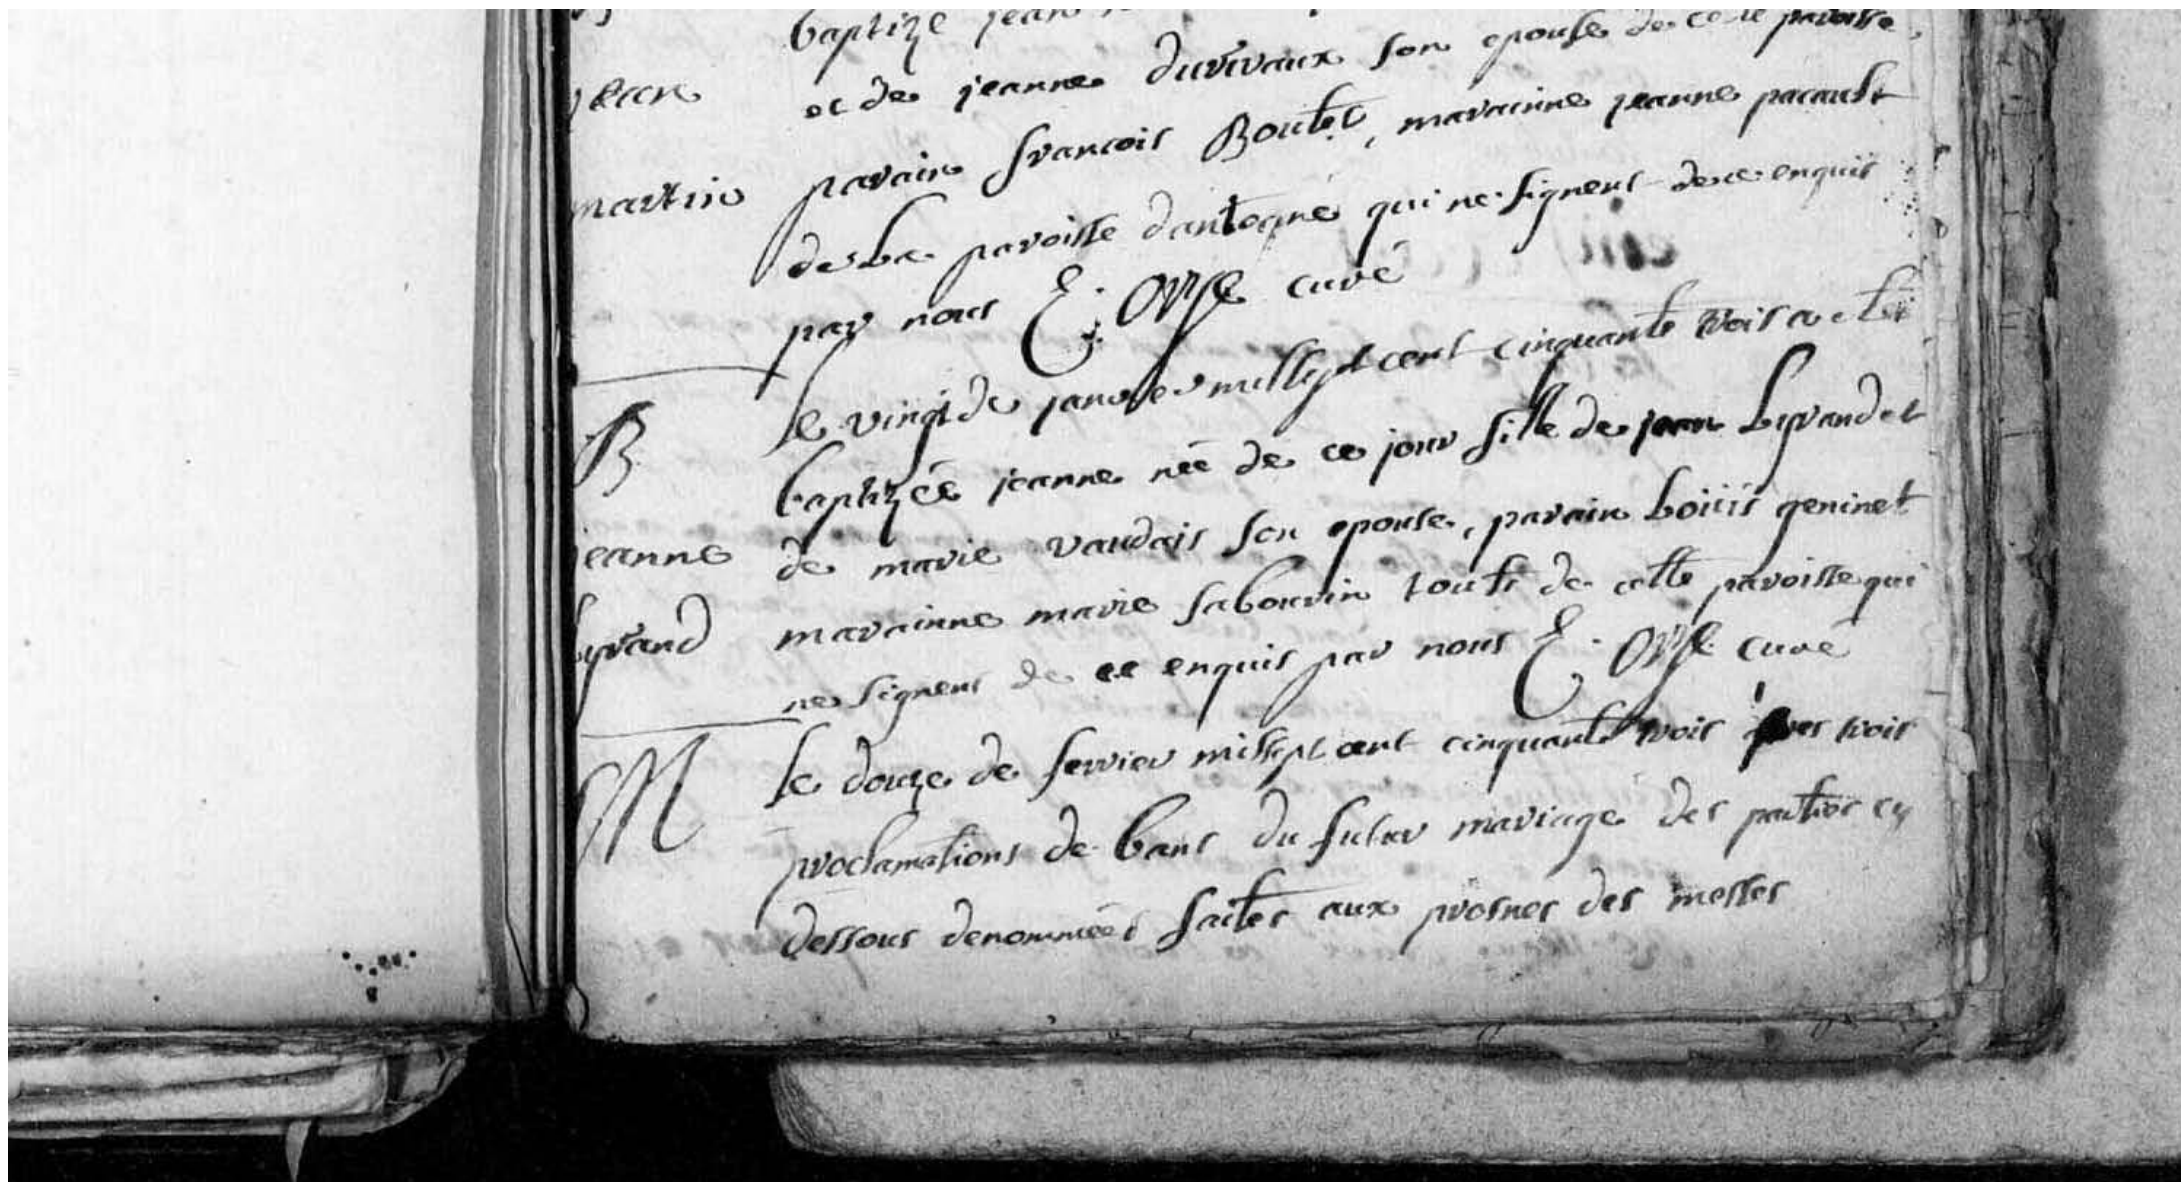 baptizé jean
et de jeanne durivaux son epouse de cette paroisse,
jean
parain francois Boutet, marainne jeanne pacault
martin
de la paroisse dantogné qui ne signent de ce enquis
par nous E. Orré curé
le vingt de janvier mil sept cent cinquante trois a eté
B
baptizéé jeanne néé de ce jour fille de jean Lyrand et
jeanne
de marie vaudais son epouse, parain Loüis geninet
Lyrand
marainne marie sabourin touts de cette paroisse qui
ne signent de ce enquis par nous E. curé
M
le douze de fevrier mil sept cent cinquante trois trois
proclamations de bans du futur mariage des parties cy
dessous denommeés faites aux prosnes des messes